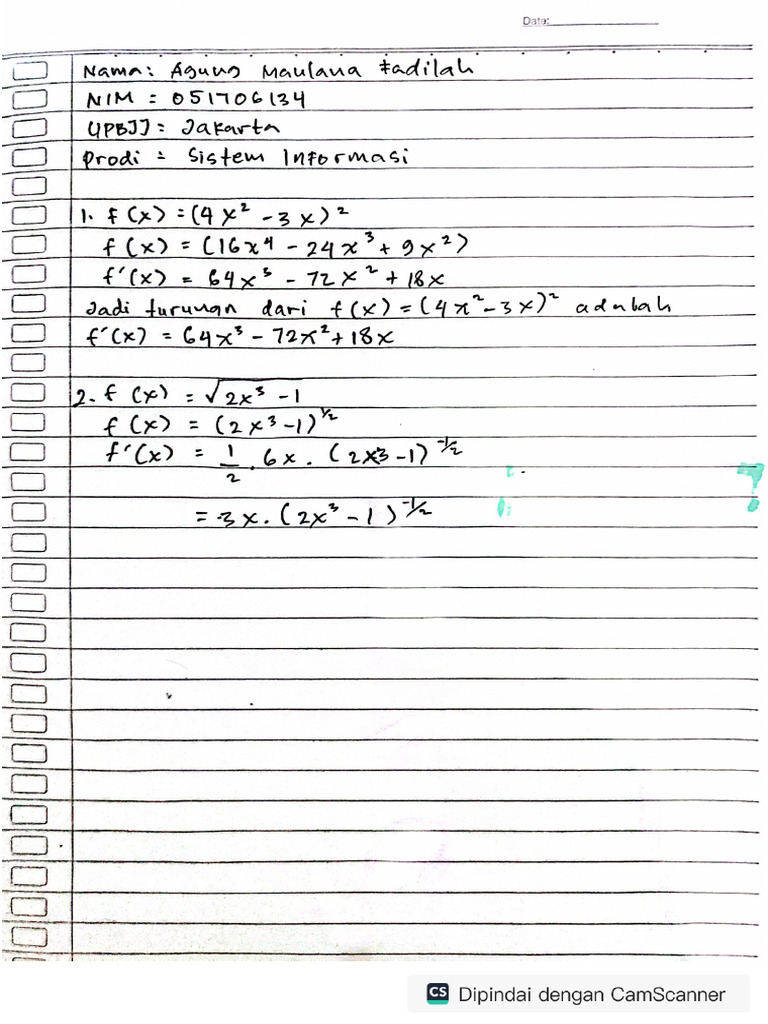 Date:
Nama: Agung Maulana Fadilah
NIM = 051706134
UPBJJ = Jakarta
Prodi = Sistem Informasi
1. f (x) = (4x² - 3x)²
f (x) = (16x⁴ - 24x³ + 9x²)
f'(x) = 64x³ - 72x² + 18x
Jadi turunan dari f(x) = (4x² - 3x)² adalah
f'(x) = 64x³ - 72x² + 18x
2. f (x) = √2x³ - 1
f (x) = (2x³ - 1)^1/2
f'(x) = 1/2 . 6x . (2x3 - 1)^-1/2
= 3x . (2x³ - 1)^-1/2
CS Dipindai dengan CamScanner